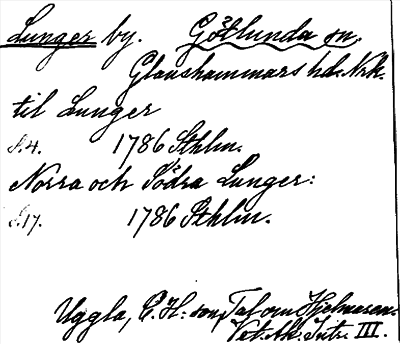 Lunger by. Götlunda sn.
Glanshammars hd. Nrk.
til Lunger
S. 4. 1786 Sthlm.
Norra och Södra Lunger:
S. 17. 1786 Sthlm.
Uggla, C. H: son, Tal om Hjelmaren.
Vet. Ak. Intr. III.